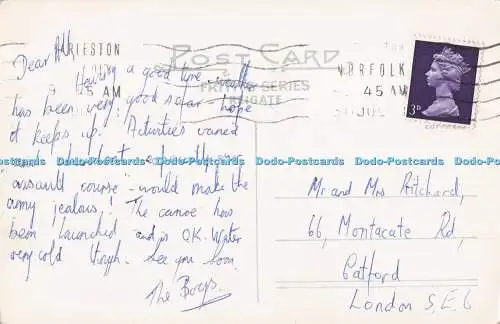 Dear All,
Having a good time. Weather
has been very good so far - hope
it keeps up! Activities varied
"assault course" - would make the
army jealous! The canoe has
been launched and is O.K. Water
very cold though. See you soon.
The Boys.
POST CARD
SERIES
REIGATE
NORFOLK
45 AM
JUL
3D
Mr and Mrs Pritchard,
66, Montacute Rd,
Catford,
London S.E.6
Dodo-Postcards Dodo-Postcards Dodo-Postcards Dodo-Postcards Dodo-Postcards